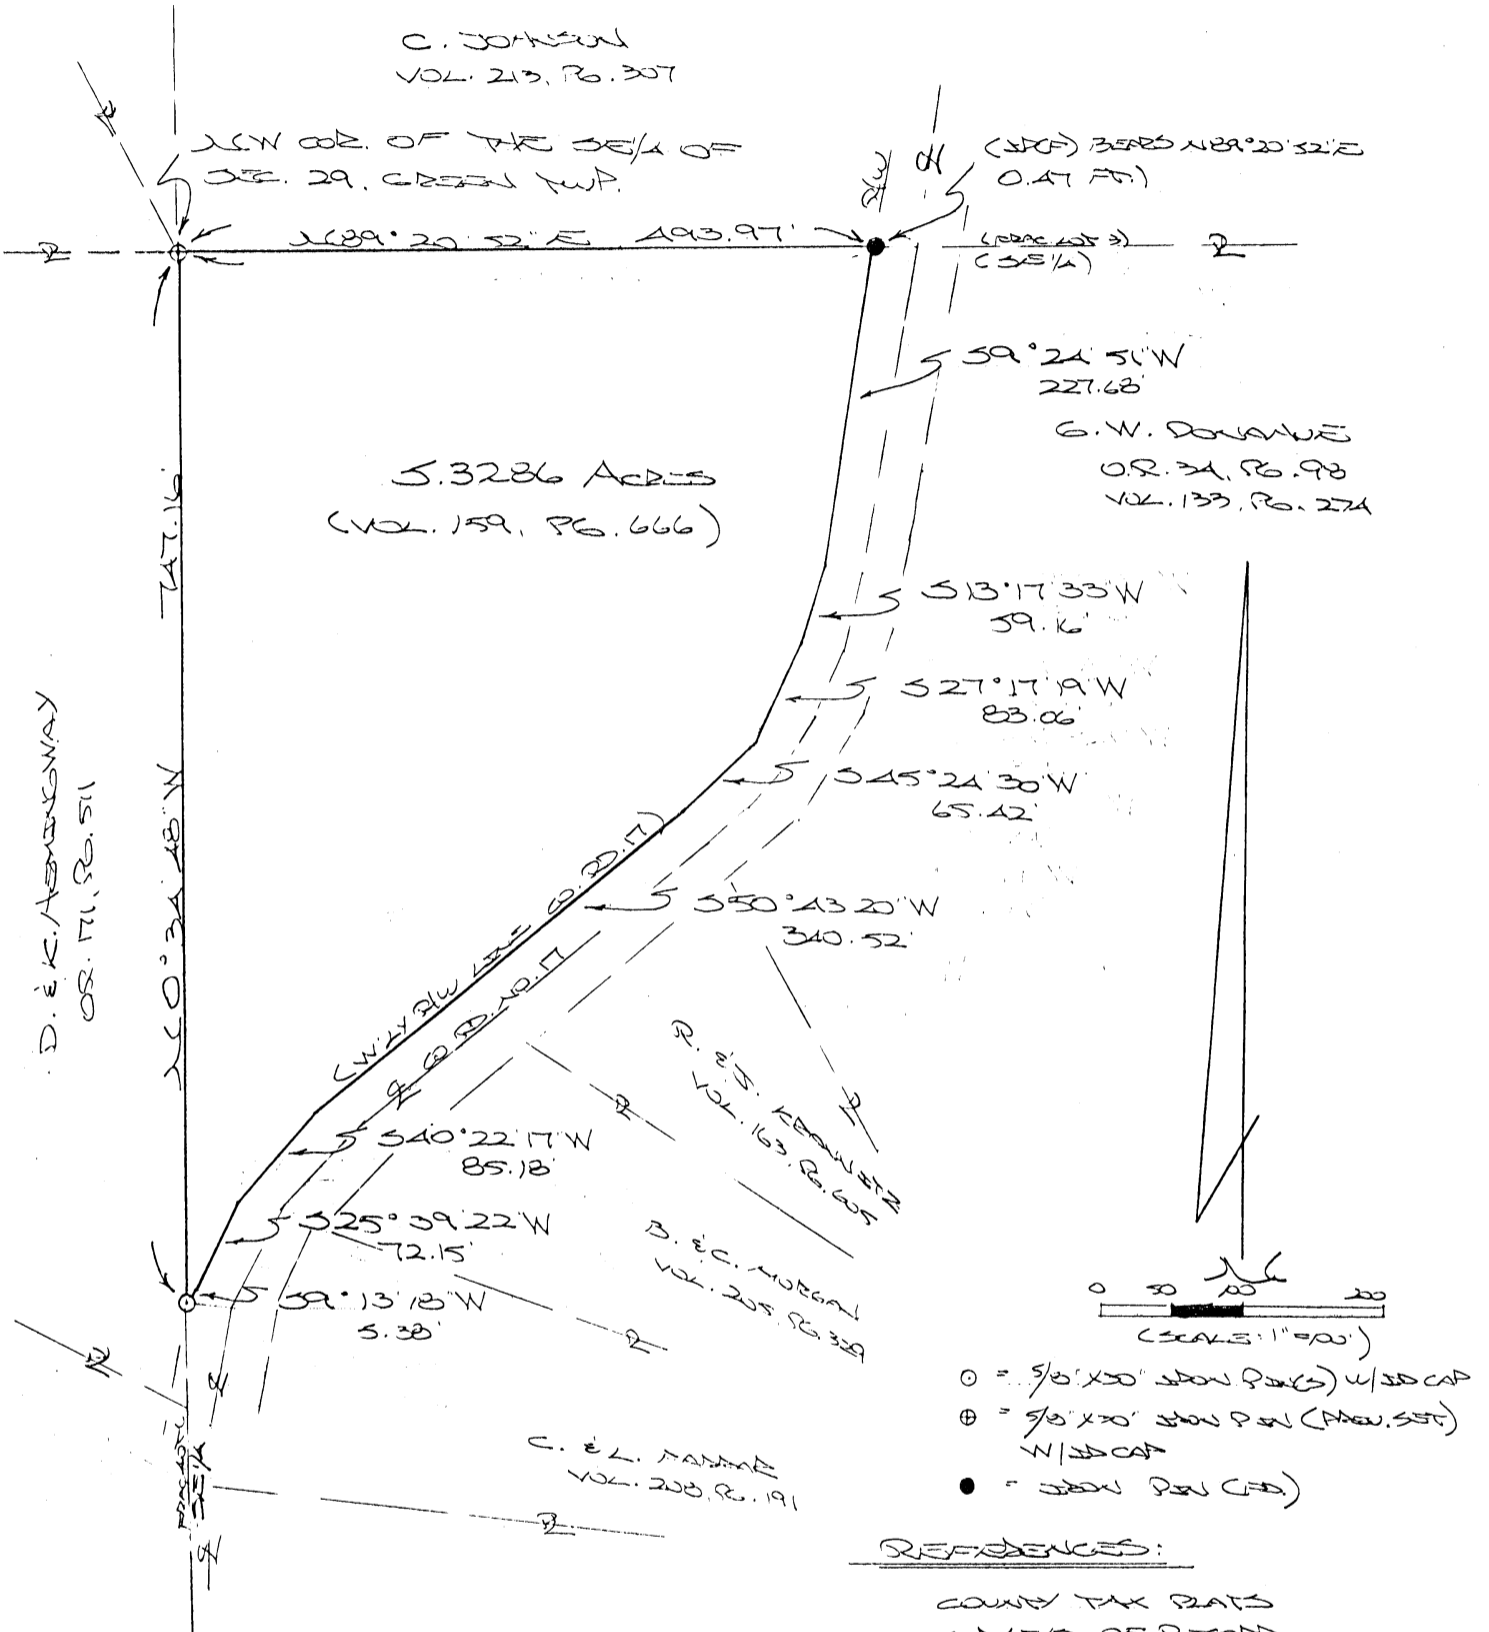 C. JOHNSON
VOL. 213, PG. 307
NW COR. OF THE SE/4 OF
SEC. 29, GREEN TWP.
R/W
(IPCF) BEARS N89°20'52"E
0.47 FT.)
N89°20'52"E 493.97'
(SE1/4)
S9°24'51"W
227.68'
G.W. DONAHUE
O.R. 34, PG. 98
VOL. 133, PG. 274
5.3286 ACRES
(VOL. 159, PG. 666)
747.16'
N0°34'48"W
D. & K. HEMINGWAY
OR. 171, PG. 511
S13°17'33"W
59.16'
S27°17'19"W
83.06'
S45°24'30"W
65.42'
S50°43'20"W
340.52'
(W'LY R/W LINE CO. RD. 17)
CO. RD. NO. 17
S40°22'17"W
85.18'
S25°39'22"W
72.15'
S9°13'18"W
5.38'
R. & J.
VOL. 163, PG. 605
B. & C. MORGAN
VOL. 205, PG. 339
C. & L.
VOL. 208, PG. 191
SE1/4
N
0 50 100 200
(SCALE: 1"=100')
= 5/8"X30" IRON PIN(S) W/ID CAP
= 5/8"X30" IRON PIN (PREV. SET)
W/ID CAP
= IRON PIN (FD.)
REFERENCES:
COUNTY TAX PLATS